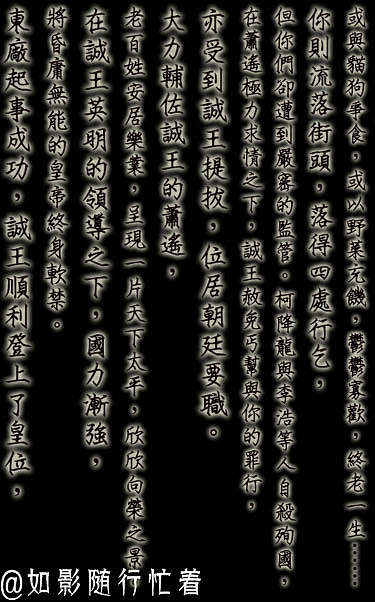 東廠起事成功，誠王順利登上了皇位，
將昏庸無能的皇帝終身軟禁。
在誠王英明的領導之下，國力漸強，
老百姓安居樂業，呈現一片天下太平，欣欣向榮之景
大力輔佐誠王的蕭遙，
亦受到誠王提拔，位居朝廷要職。
在蕭遙極力求情之下，誠王赦免丐幫與你的罪行，
但你們卻遭到嚴密的監管。柯降龍與李浩等人自殺殉國，
你則流落街頭，落得四處行乞，
或與貓狗爭食，或以野菜充饑，鬱鬱寡歡，終老一生……
@如影随行忙着